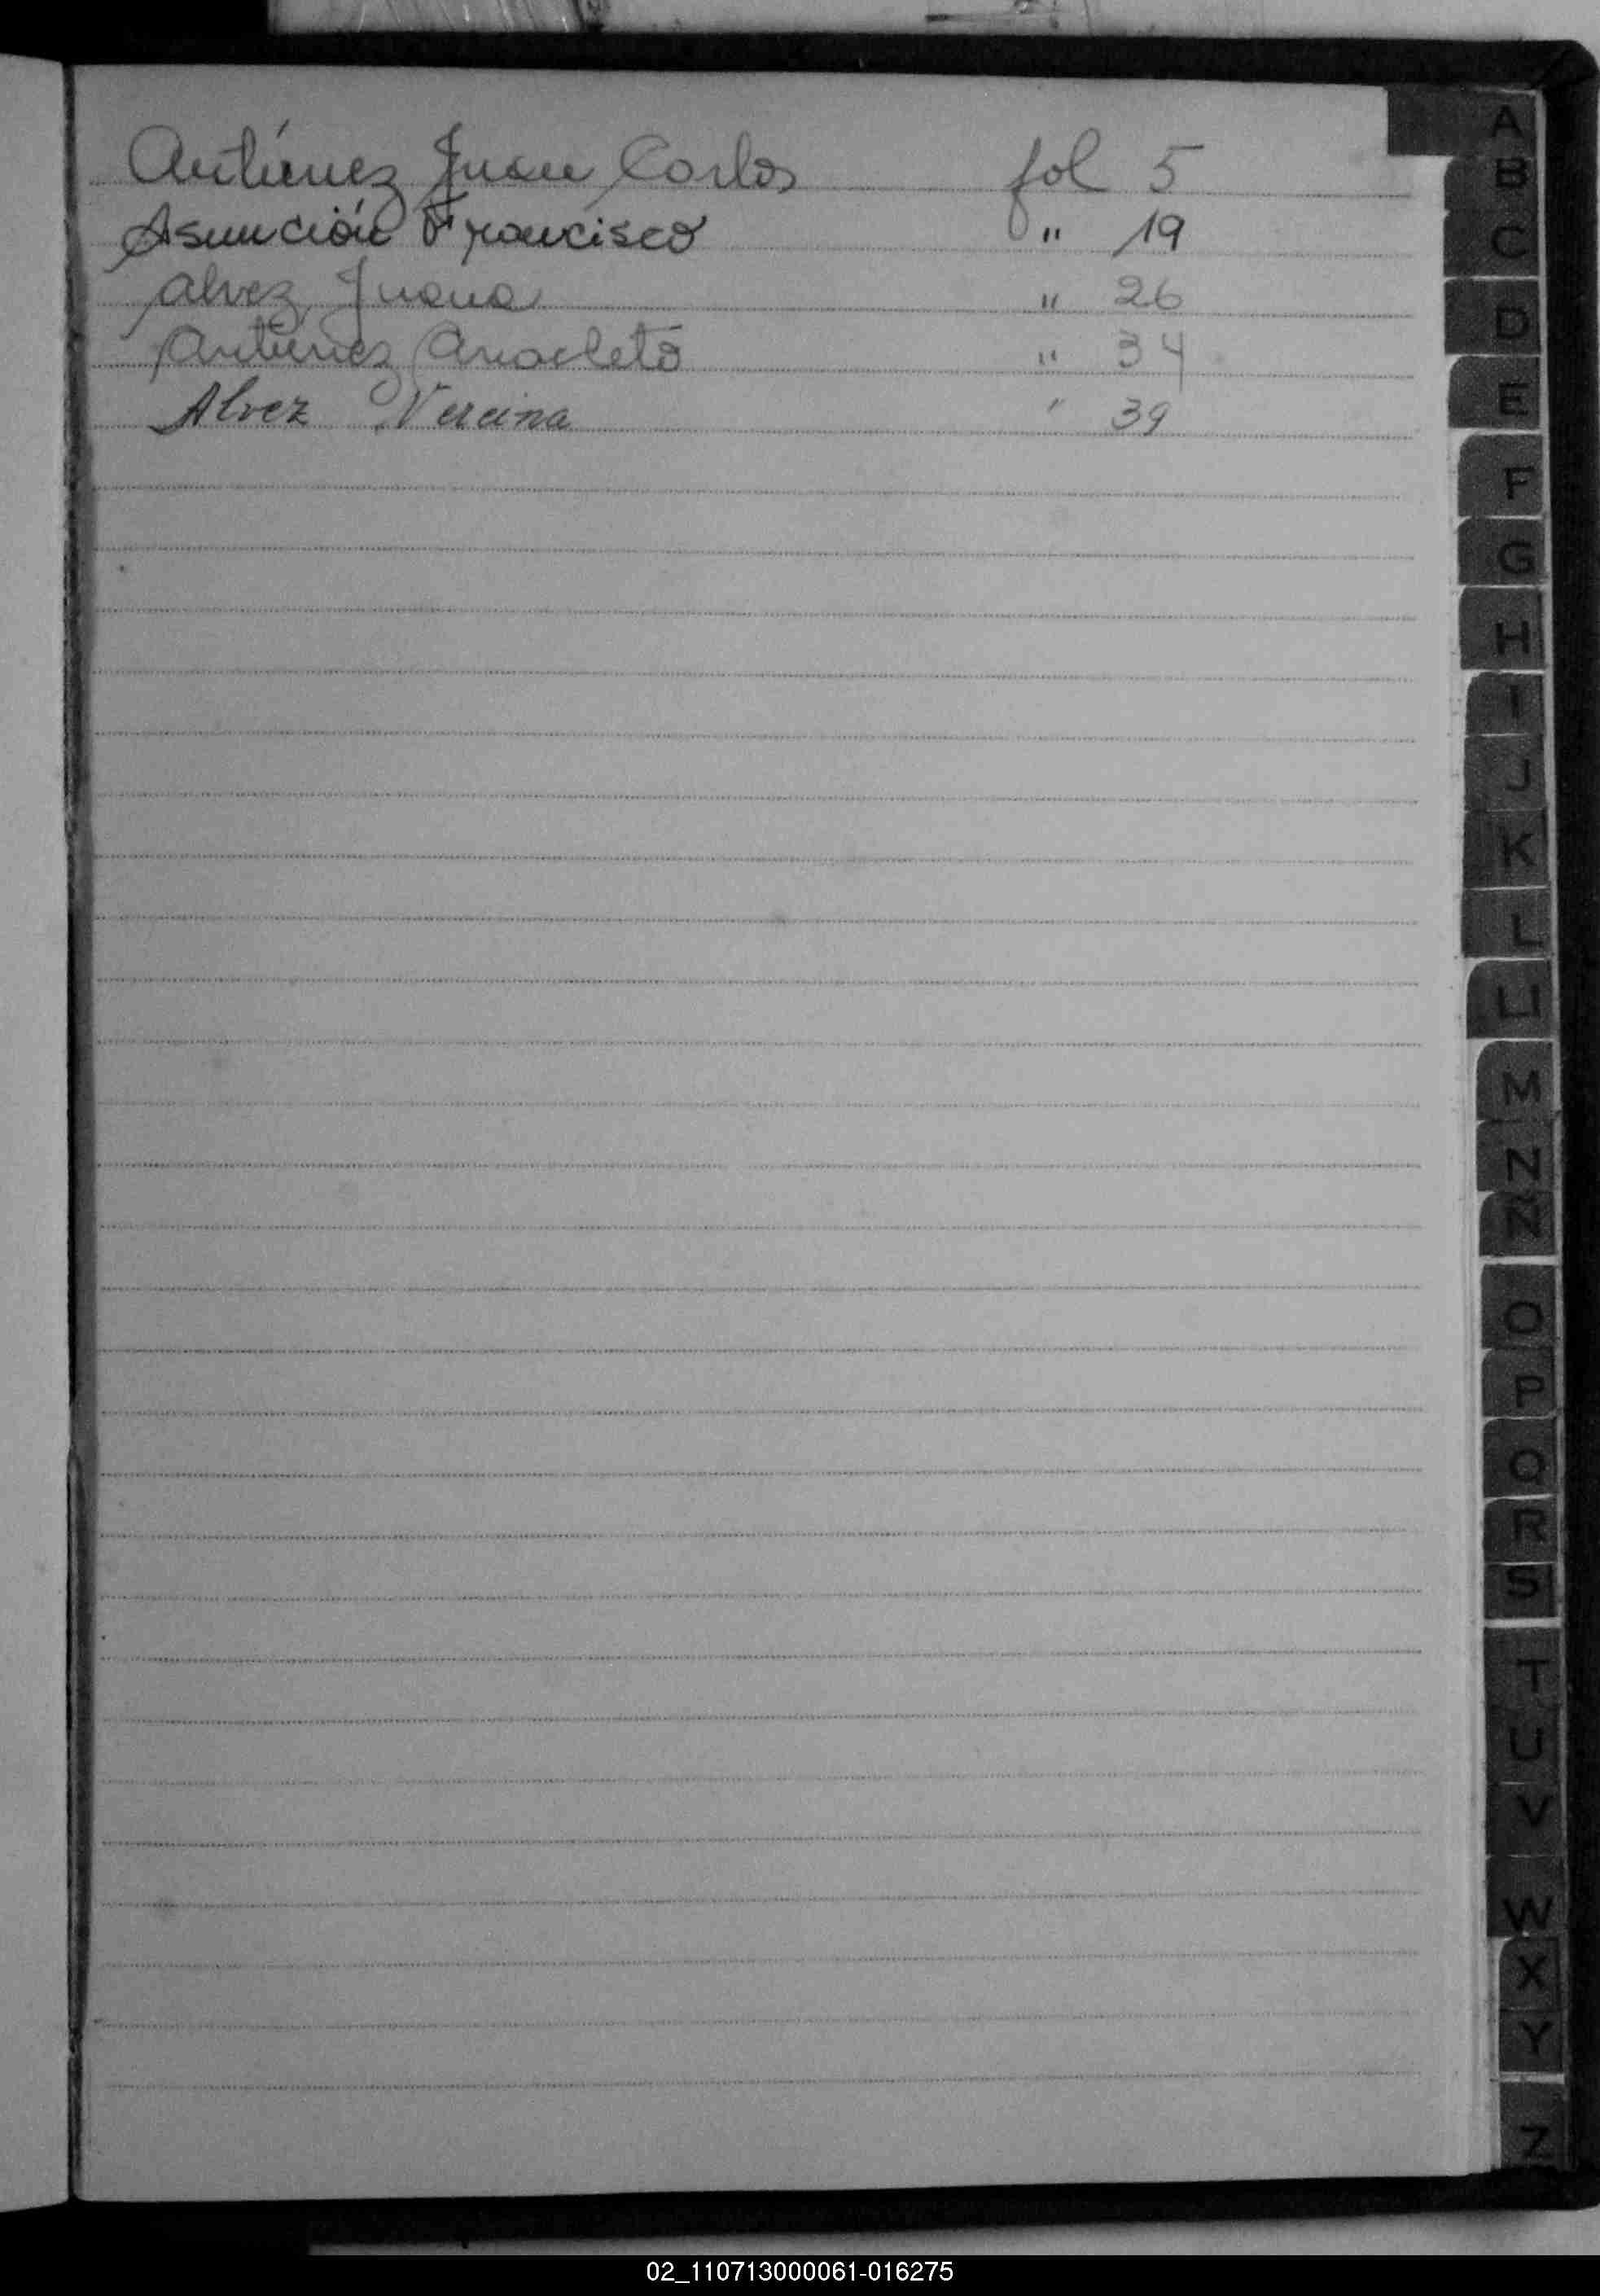 Antúnez Juan Carlos fol 5
Asunción Francisco " 19
Alvez Juana " 26
Antúnez Anacleto " 34
Alvez " 39
A
B
C
D
E
F
G
H
I
J
K
L
LL
M
N
Ñ
O
P
Q
R
S
T
U
V
W
X
Y
Z
02_110713000061-016275